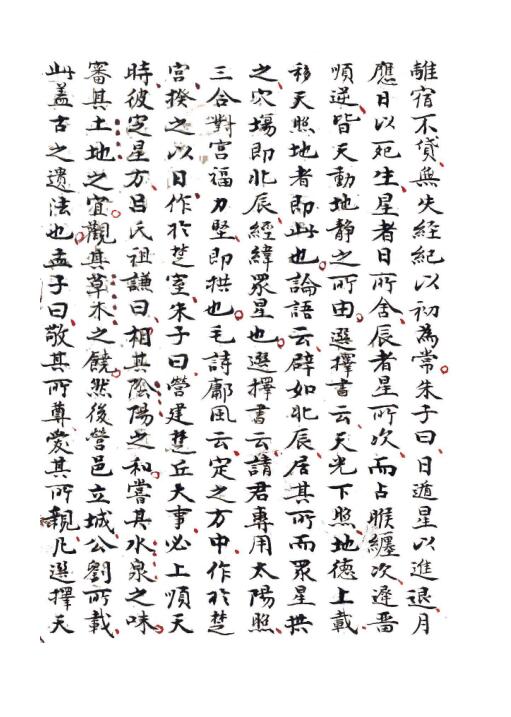 離宿不貸無失經紀以初為常朱子曰日遁星以進退月
應日以死生星者日所舍辰者星所次而占睺纏次遲畱
順逆皆天動地靜之所由選擇書云天光下照地德上載
移天照地者即此也論語云辟如北辰居其所而眾星拱
之穴塲即北辰經緯眾星也選擇書云請君專用太陽照
三合對宮福力堅即拱也毛詩鄘風云定之方中作於楚
宮揆之以日作於楚室朱子曰營建楚丘大事必上順天
時彼定星方呂氏祖謙曰相其陰陽之和嘗其水泉之味
審其土地之宜觀其草木之饒然後營邑立城公劉所載
此蓋古之遺法也孟子曰敬其所尊愛其所親凡選擇天